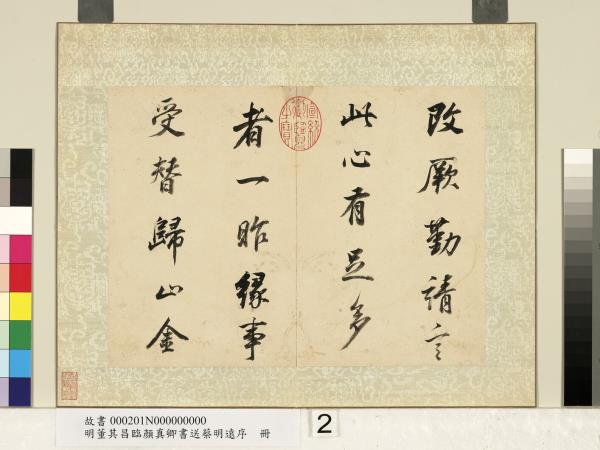 改厥勤靖言
此心有足多
者一昨緣事
受替歸止金
宣統御覽之寶
故書 000201N000000000
明董其昌臨顏真卿書送蔡明遠序 冊
2